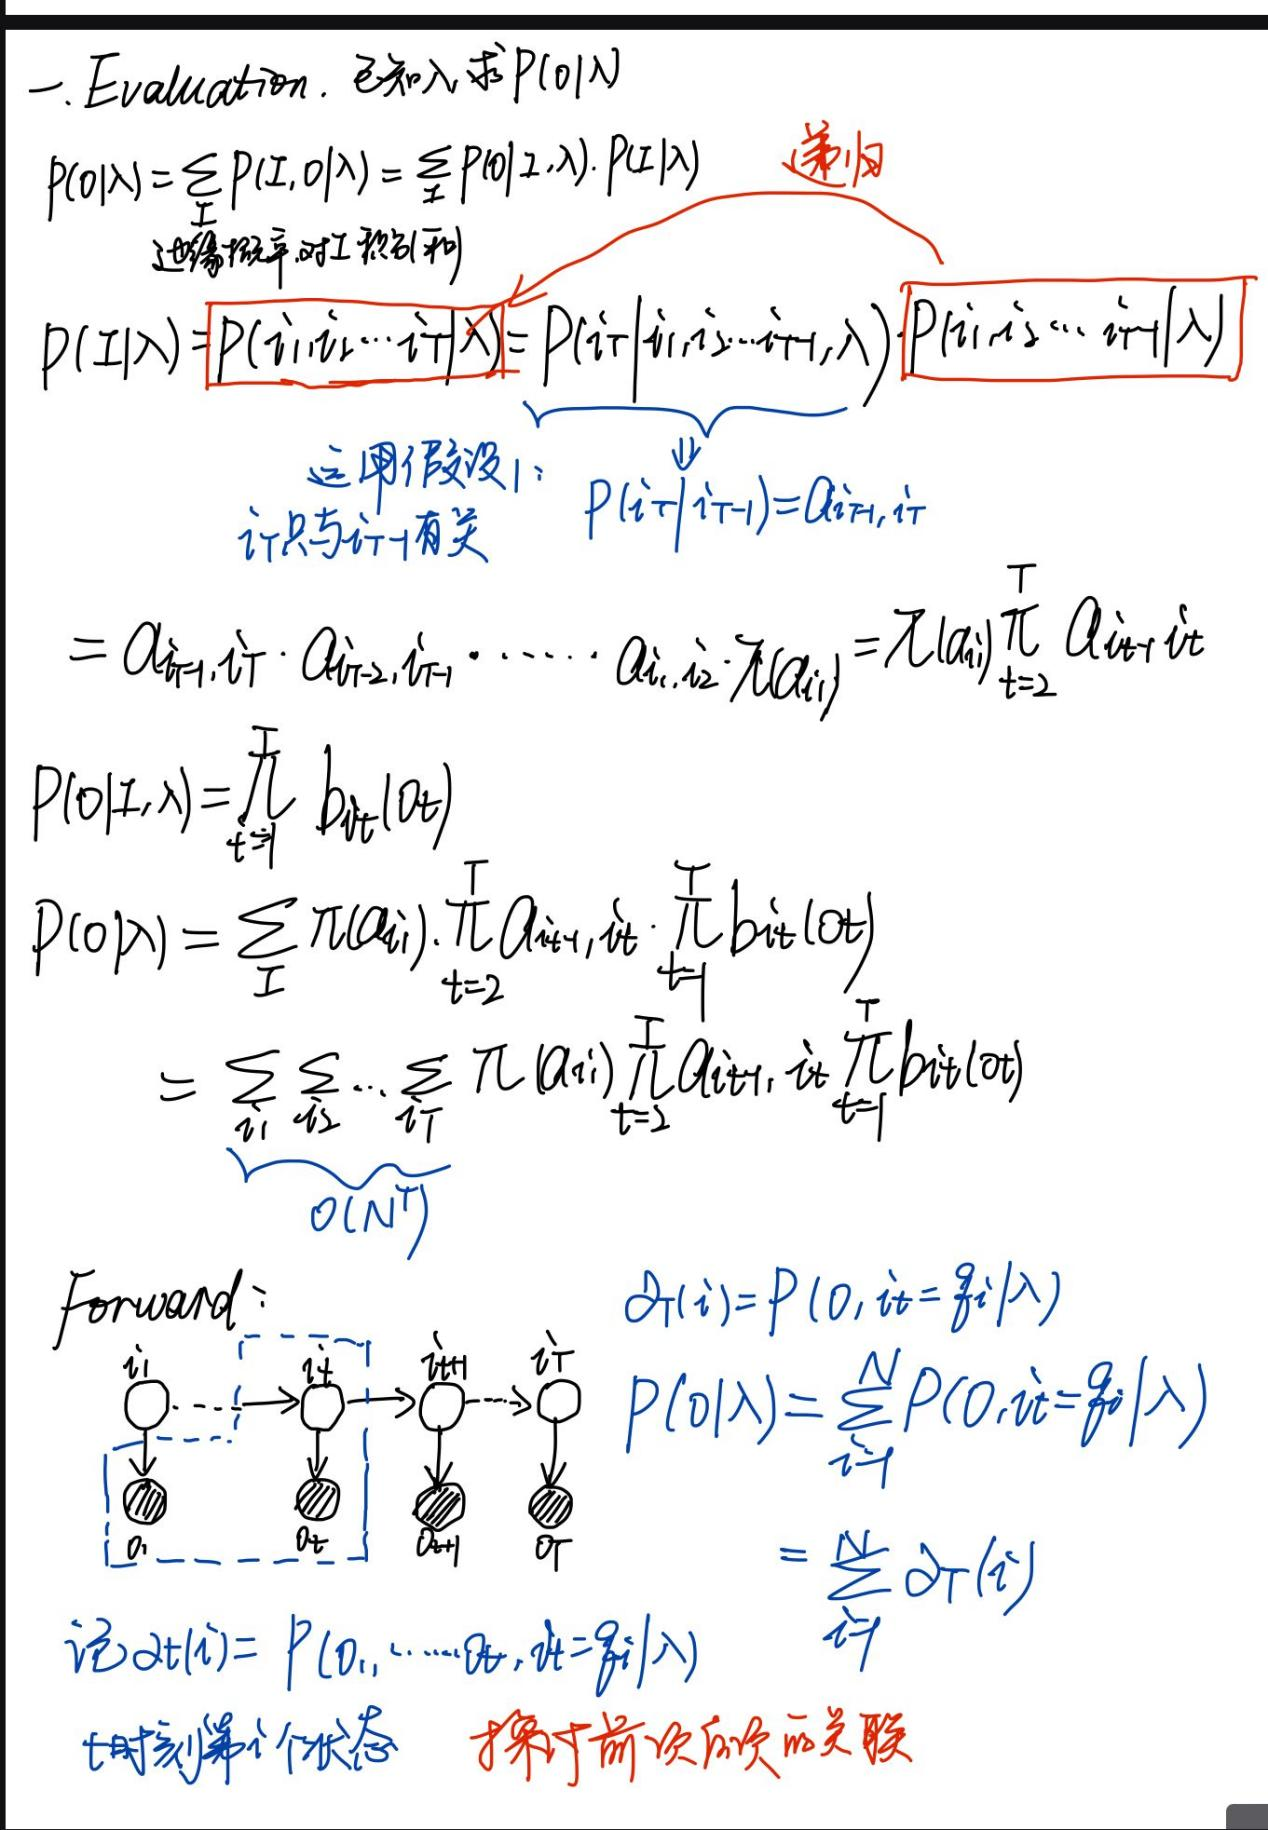 一. Evaluation. 已知λ, 求P(O|λ)
P(O|λ) = ∑_I P(I,O|λ) = ∑_I P(O|I,λ)·P(I|λ)
递归
边缘概率,对I积分(和)
P(I|λ) = P(i₁,i₂…i_T|λ) = P(i_T|i₁,i₂…i_{T-1},λ)·P(i₁,i₂…i_{T-1}|λ)
运用假设1:
⇓
i_T只与i_{T-1}有关
P(i_T|i_{T-1}) = a_{i_{T-1},i_T}
= a_{i_{T-1},i_T}·a_{i_{T-2},i_{T-1}}·……a_{i₁,i₂}·π(a_{i₁}) = π(a_{i₁}) π_{t=2}^T a_{i_{t-1} i_t}
P(O|I,λ) = π_{t=1}^T b_{i_t}(o_t)
P(O|λ) = ∑_I π(a_{i₁})·π_{t=2}^T a_{i_{t-1},i_t}·π_{t=1}^T b_{i_t}(o_t)
= ∑_{i₁} ∑_{i₂} … ∑_{i_T} π(a_{i₁}) π_{t=2}^T a_{i_{t-1},i_t} π_{t=1}^T b_{i_t}(o_t)
O(N^T)
Forward:
i₁ i_t i_{t+1} i_T
o₁ o_t o_{t+1} o_T
α_T(i) = P(O,i_t=q_i|λ)
P(O|λ) = ∑_{i=1}^N P(O,i_t=q_i|λ)
= ∑_{i=1}^N α_T(i)
记α_t(i) = P(o₁,……o_t,i_t=q_i|λ)
t时刻第i个状态
探讨前次后次的关联